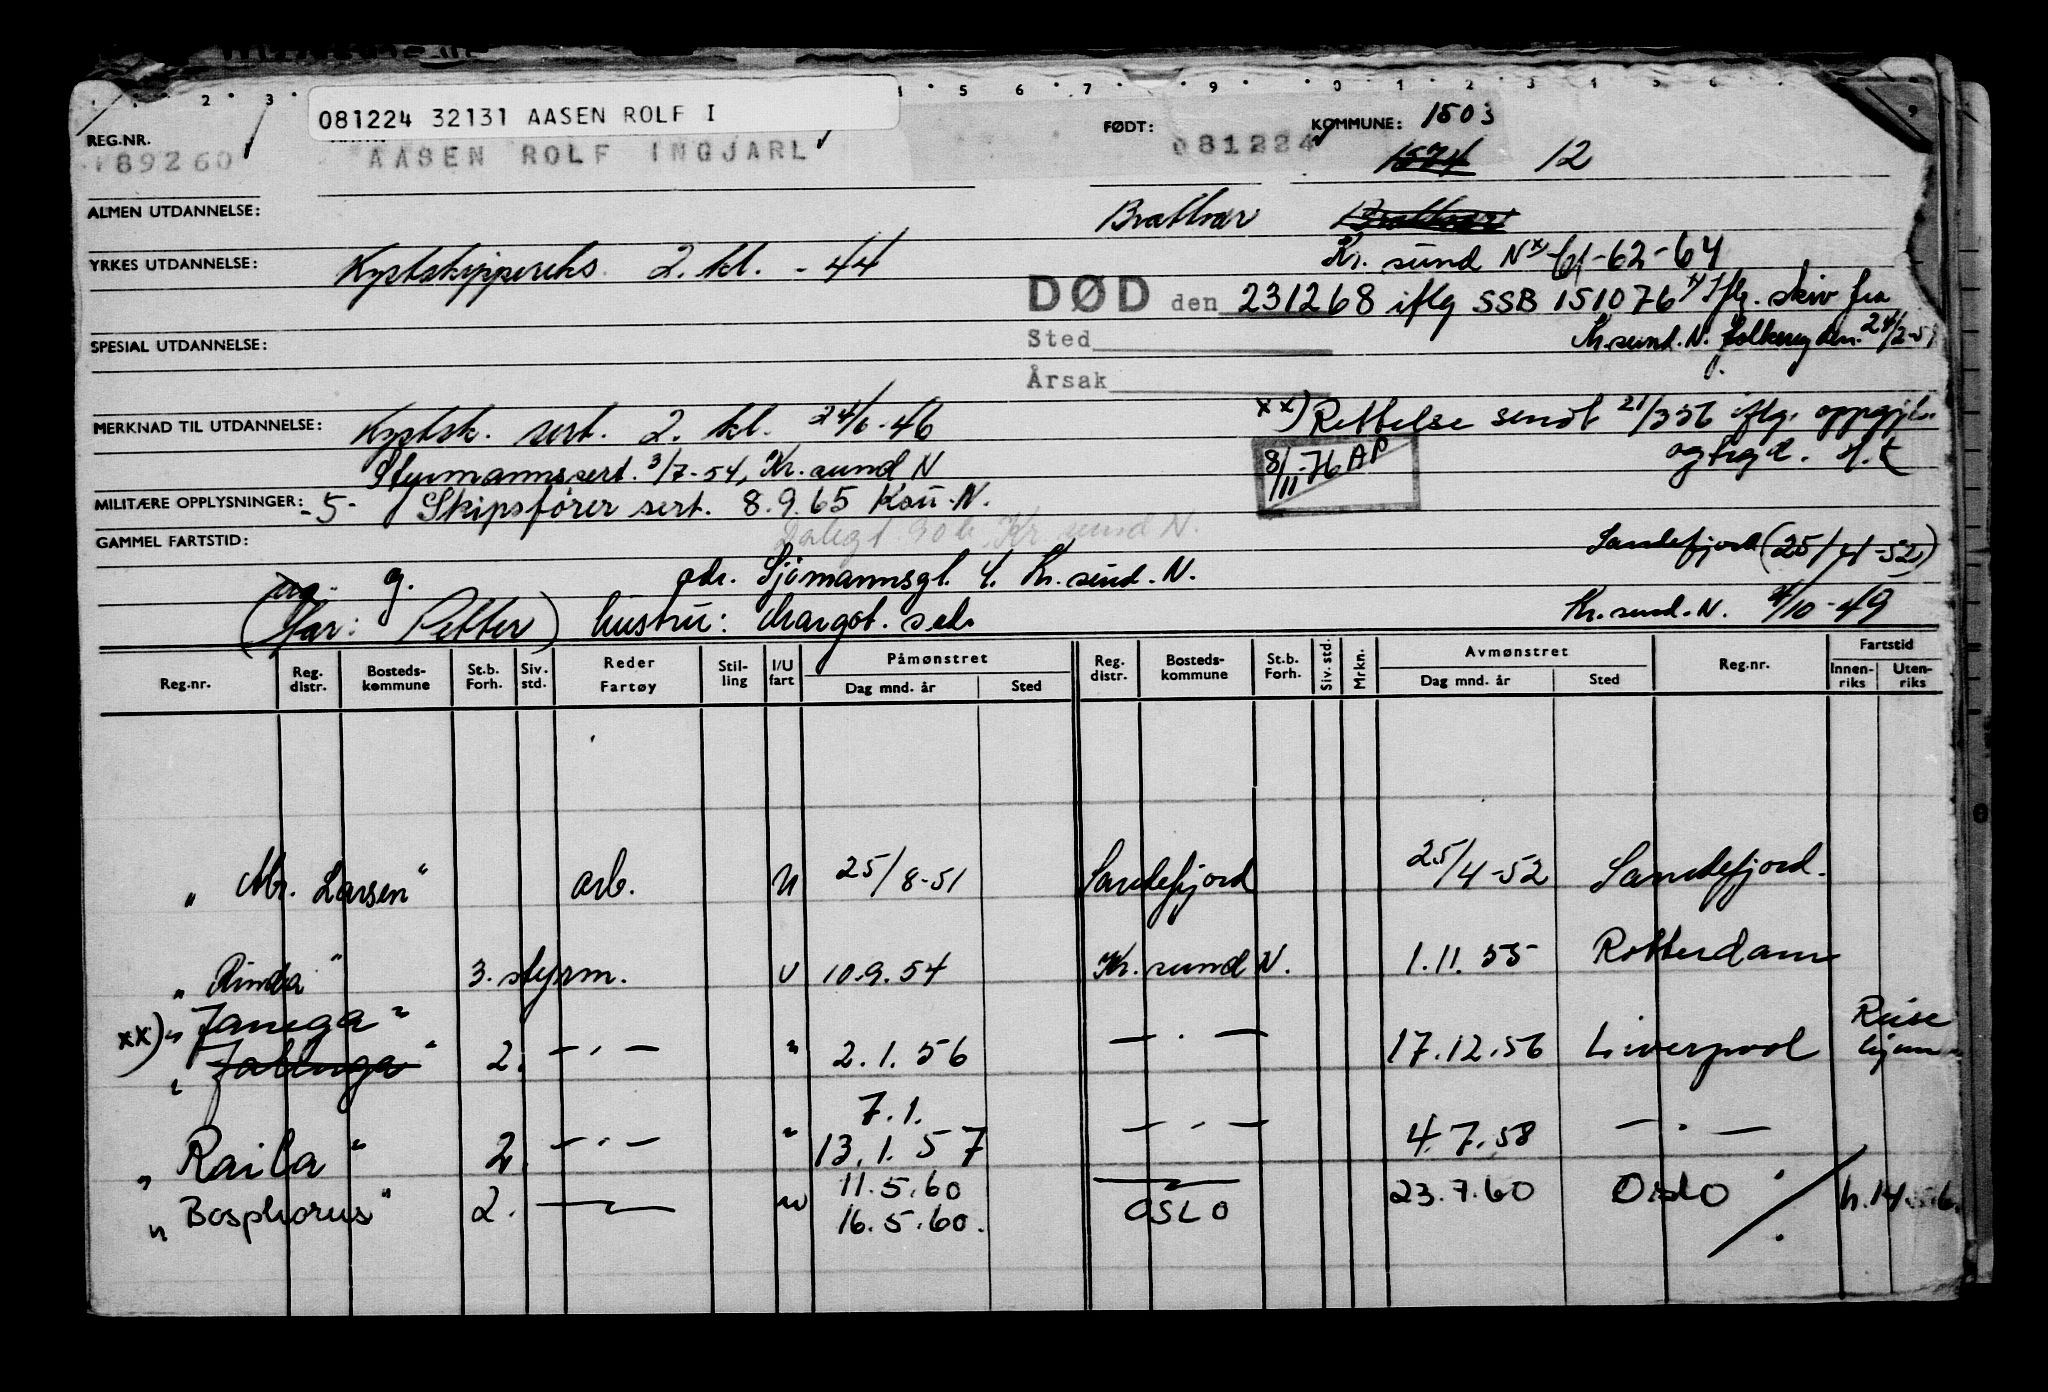 081224 32131 AASEN ROLF I
REG.NR. FØDT: KOMMUNE: 1503
189260 AASEN ROLF INGJARL 081224 1574 12
ALMEN UTDANNELSE: Brattvær Brattvær
YRKES UTDANNELSE: Kystskippereks. 2. kl. - 44 Kr. sund N x) -61-62-64
DØD den 231268 iflg SSB 151076 x) Iflg. skriv fra
SPESIAL UTDANNELSE: Sted Kr.sund. N. folkereg den. 24/2-51
Årsak
MERKNAD TIL UTDANNELSE: Kystsk. sert. 2. kl. 24/6-46 xx) Rettelse sendt
Styrmannssert. 3/7-54, Kr. sund N 8/11-76 AP
MILITÆRE OPPLYSNINGER: -5- Skipsfører sert. 8.9.65 Ksu-N.
GAMMEL FARTSTID: Kr sund N. Sandefjord (25/4-52)
g. adr. Sjömannsgt. 4. Kr. sund. N.
(Far: Petter) hustru: Margot. sds Kr. sund. N. 4/10-49
Reg.nr. Reg. distr. Bosteds- kommune St.b. Forh. Siv. std. Reder Fartøy Stil- ling I/U fart Påmønstret Dag mnd. år Sted Reg. distr. Bosteds- kommune St.b. Forh. Siv. std. Mrkn. Avmønstret Dag mnd. år Sted Reg.nr. Fartstid Innen- riks Uten- riks
" Mr. Larsen" arb. U 25/8-51 Sandefjord 25/4-52 Sandefjord.
" Rinda" 3. styrm. U 10.9.54 Kr. sund N. 1.11.55 Rotterdam
xx) " Janega" Reise
" 2. — . — " 2.1.56 — . — 17.12.56 Liverpool hjem
7.1.
" Raila" 2. — . — " 13.1.57 — . — 4.7.58 — . —
11.5.60
" Bosphorus" 2. 16.5.60. OSLO 23.7.60 Oslo